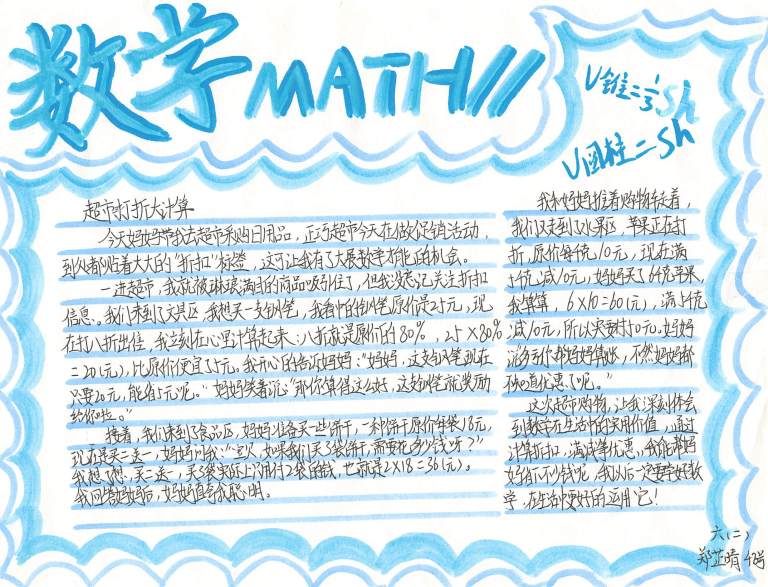 数学 MATH
V锥=1/3Sh
V圆柱=Sh
超市打折大计算
今天妈妈带我去超市采购日用品，正巧超市今天在做促销活动，
到处都贴着大大的“折扣”标签，这可让我有了大展数学才能的机会。
一进超市，我就被琳琅满目的商品吸引住了，但我没忘记关注折扣
信息。我们来到了文具区，我想买一支钢笔，我看中的钢笔原价是25元，现
在打八折出售，我立刻在心里计算起来：八折就是原价的80%，25×80%
=20(元)，比原价便宜了5元。我开心的告诉妈妈：“妈妈，这支钢笔现在
只要20元，能省5元呢。”妈妈笑着说：“那你算得这么好，这支钢笔就奖励
给你啦。”
接着，我们来到了食品区，妈妈准备买一些饼干，一种饼干原价每袋18元，
现在是买二送一，妈妈问我：“如果我们买3袋饼干，需要花多少钱呀？”
我想了想，买二送一，买3袋实际上只用付2袋的钱，也就是2×18=36(元)。
我回答妈妈后，妈妈直夸我聪明。
我和妈妈推着购物车走着，
我们又走到了水果区，苹果正在打
折，原价每千克10元，现在满
5千克减10元，妈妈买了6千克苹果，
我算算，6×10=60(元)，满5千克
减10元，所以只要付50元。妈妈
说多亏你帮妈妈算账，不然妈妈都
不知道优惠了呢。”
这次超市购物，让我深刻体会
到数学在生活中的实用价值，通过
计算折扣、满减等优惠，我能帮妈
妈省不少钱呢，我以后一定要学好数
学，在生活中更好的运用它！
六(二)
郑芷晴 42号